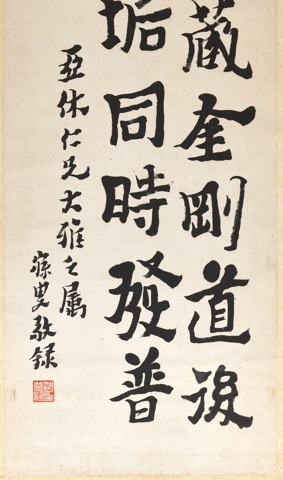 藏金剛道後
垢同時發普
亞休仁兄大雅之属
寐叟敬録